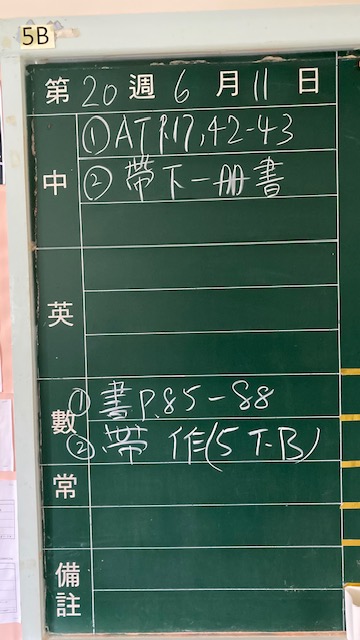 5B
第 20 週 6 月 11 日
中
① AT P.17, 42-43
② 帶下一冊書
英
數
① 書 P.85-88
② 帶 作(5下B)
常
備註